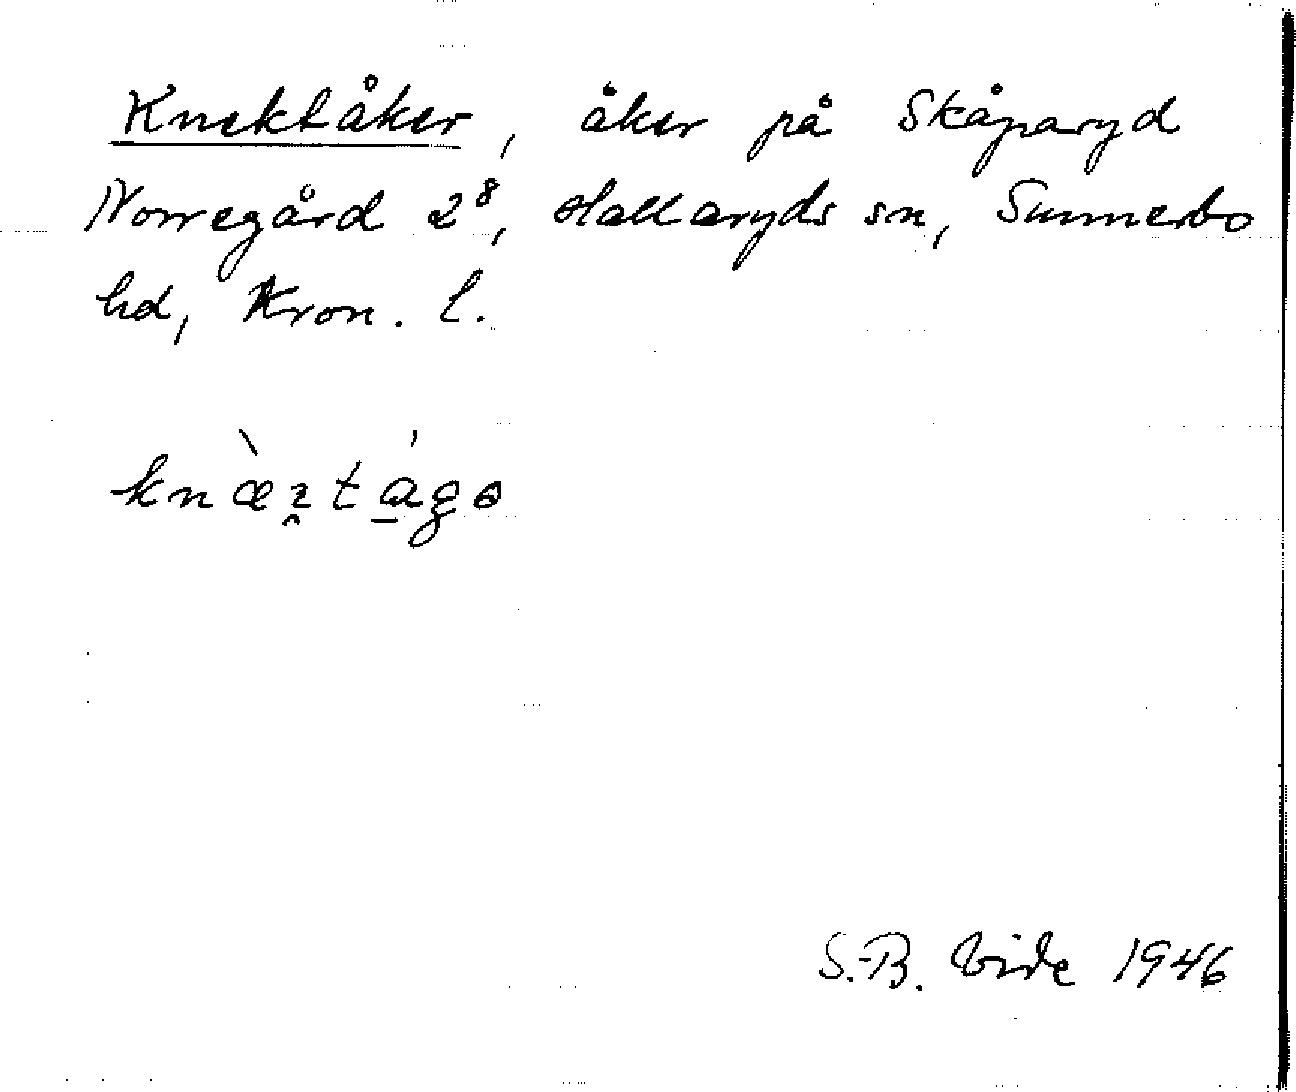 Knektåker, åker på Skåparyd
Norregård 2⁸, Hallaryds sn, Sunnerbo
hd, Kron. l.
knæ̀ztága
S.-B. Vide 1946